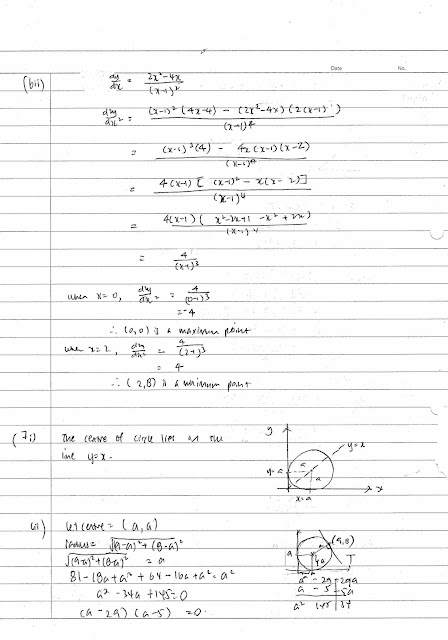 Date No.
(bii) dy/dx = (2x²-4x)/(x-1)²
d²y/dx² = ((x-1)²(4x-4) - (2x²-4x)(2(x-1)))/(x-1)⁴
= ((x-1)³(4) - 4x(x-1)(x-2))/(x-1)⁴
= 4(x-1)[(x-1)² - x(x-2)]/(x-1)⁴
= 4(x-1)(x²-2x+1-x²+2x)/(x-1)⁴
= 4/(x-1)³
when x=0, d²y/dx² = 4/(0-1)³
= -4
∴ (0,0) is a maximum point
when x=2, d²y/dx² = 4/(2-1)³
= 4
∴ (2,8) is a minimum point
(7i) The centre of circle lies on the
line y=x.
y
y=x
y=a
a
a
x
x=a
(ii) let centre = (a,a)
radius = √((9-a)²+(8-a)²)
√((9-a)²+(8-a)²) = a
81-18a+a²+64-16a+a²=a²
a²-34a+145=0
(a-29)(a-5)=0
(9,8)
a
a
a -29 -29a
a -5 -5a
a² 145 34